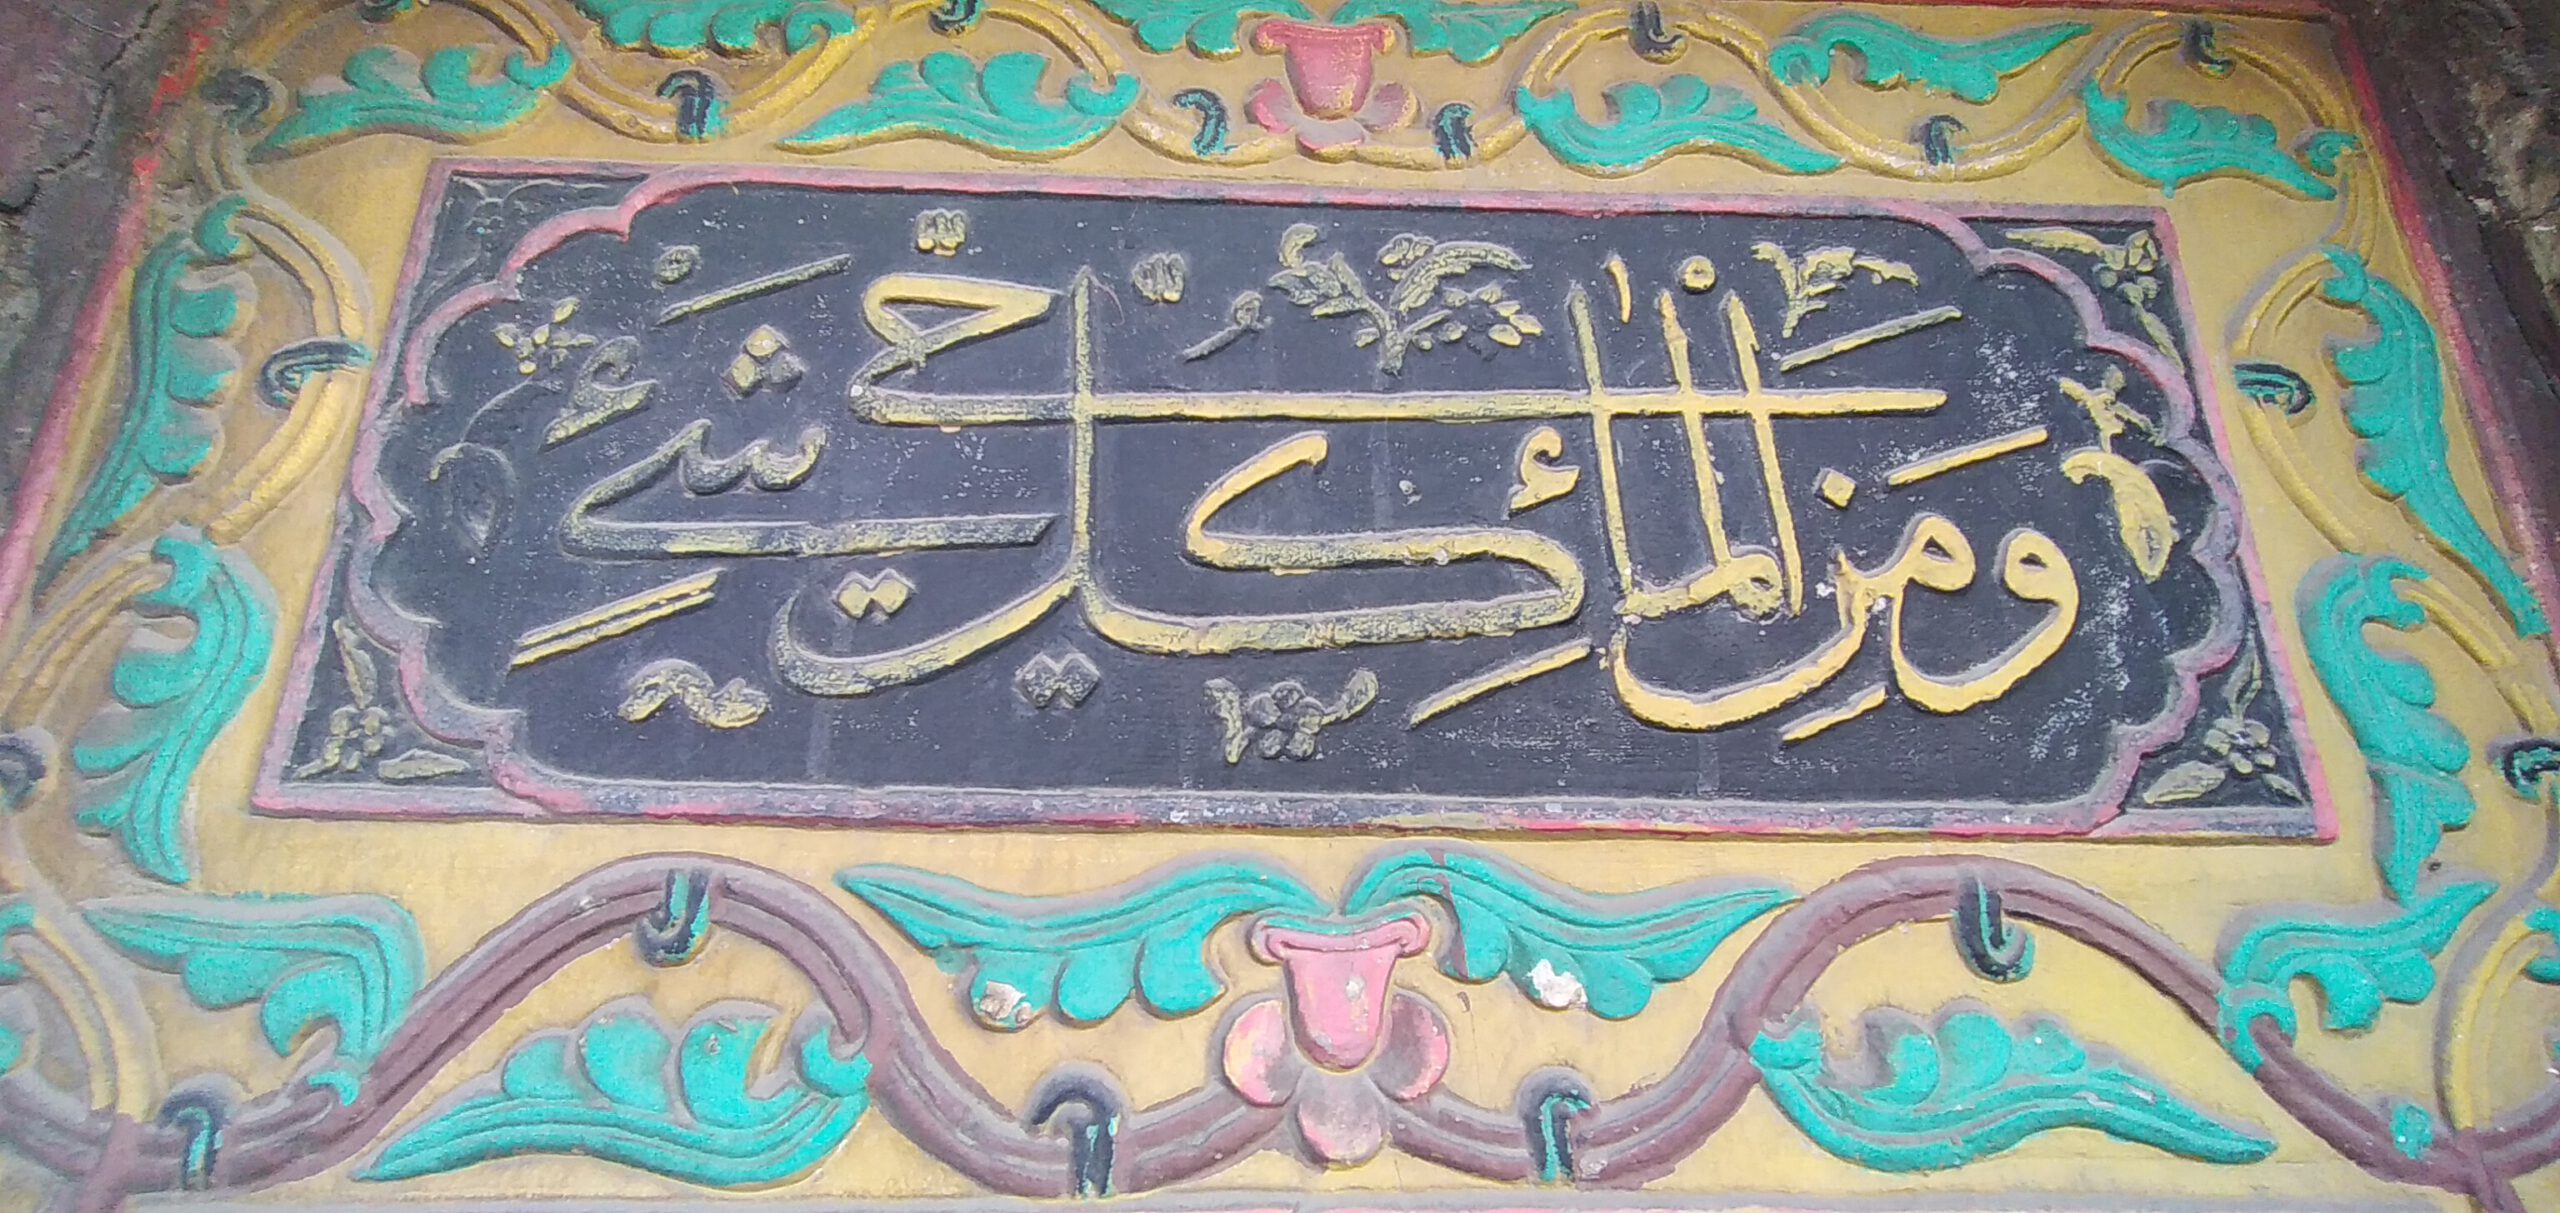 وَمِنَ الْمَاءِ كُلَّ شَيْءٍ حَيٍّ